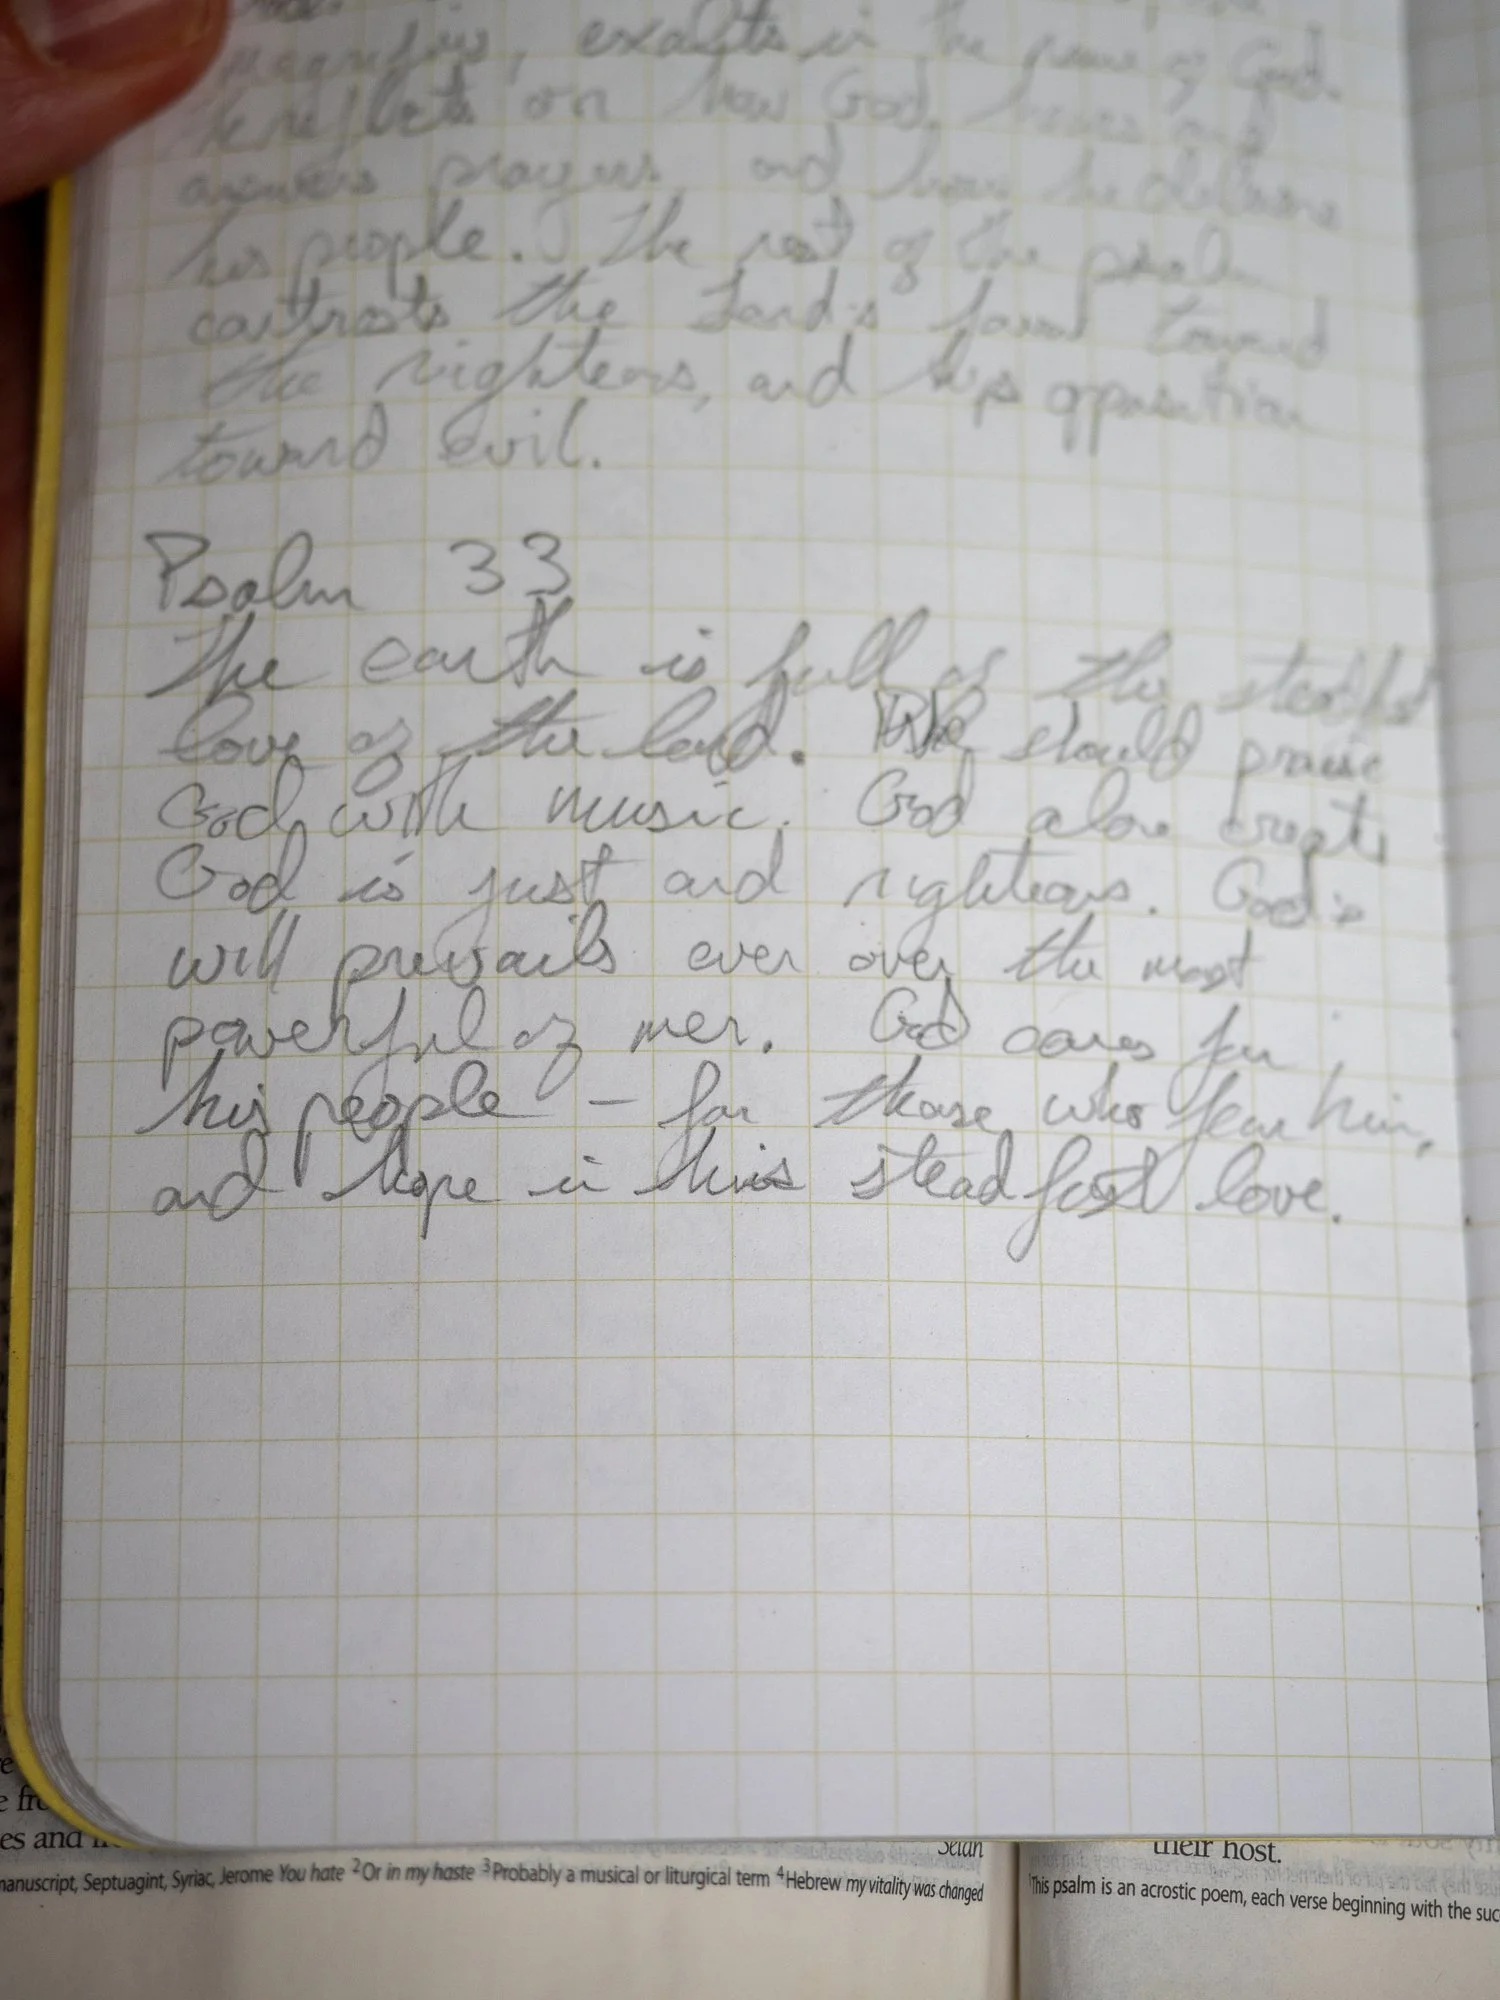 magnifies, exalts in the name of God.
He reflects on how God hears and
answers prayers, and how he delivers
his people. The rest of the psalm
contrasts the Lord's favor toward
the righteous, and his opposition
toward evil.
Psalm 33
The earth is full of the steadfast
love of the Lord. We should praise
God with music. God alone creates
God is just and righteous. God's
will prevails even over the most
powerful of men. God cares for
his people - for those who fear him,
and hope in his steadfast love.
es and
Selah
manuscript, Septuagint, Syriac, Jerome You hate 2Or in my haste 3Probably a musical or liturgical term 4Hebrew my vitality was changed
their host.
1This psalm is an acrostic poem, each verse beginning with the suc